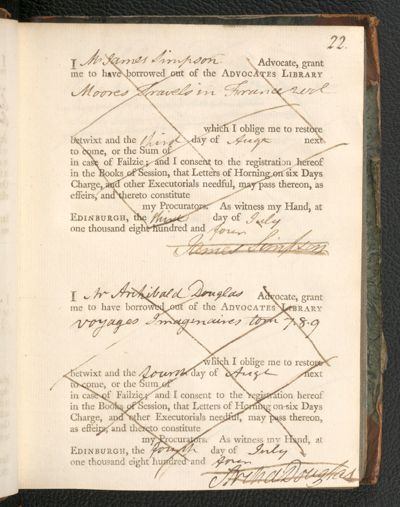 22.
I Mr James Simpson Advocate, grant
me to have borrowed out of the ADVOCATES LIBRARY
Moores Travels in France 2 vol
which I oblige me to restore
betwixt and the third day of Augt next
to come, or the Sum of
in case of Failzie; and I consent to the registration hereof
in the Books of Session, that Letters of Horning on six Days
Charge, and other Executorials needful, may pass thereon, as
effeirs, and thereto constitute
my Procurators. As witness my Hand, at
EDINBURGH, the third day of July
one thousand eight hundred and four
James Simpson
I Mr Archibald Douglas Advocate, grant
me to have borrowed out of the ADVOCATES LIBRARY
Voyages Imaginaires tom 7.8.9
which I oblige me to restore
betwixt and the fourth day of Augt next
to come, or the Sum of
in case of Failzie; and I consent to the registration hereof
in the Books of Session, that Letters of Horning on six Days
Charge, and other Executorials needful, may pass thereon,
as effeirs, and thereto constitute
my Procurators. As witness my Hand, at
EDINBURGH, the fourth day of July
one thousand eight hundred and four
Archd Douglas